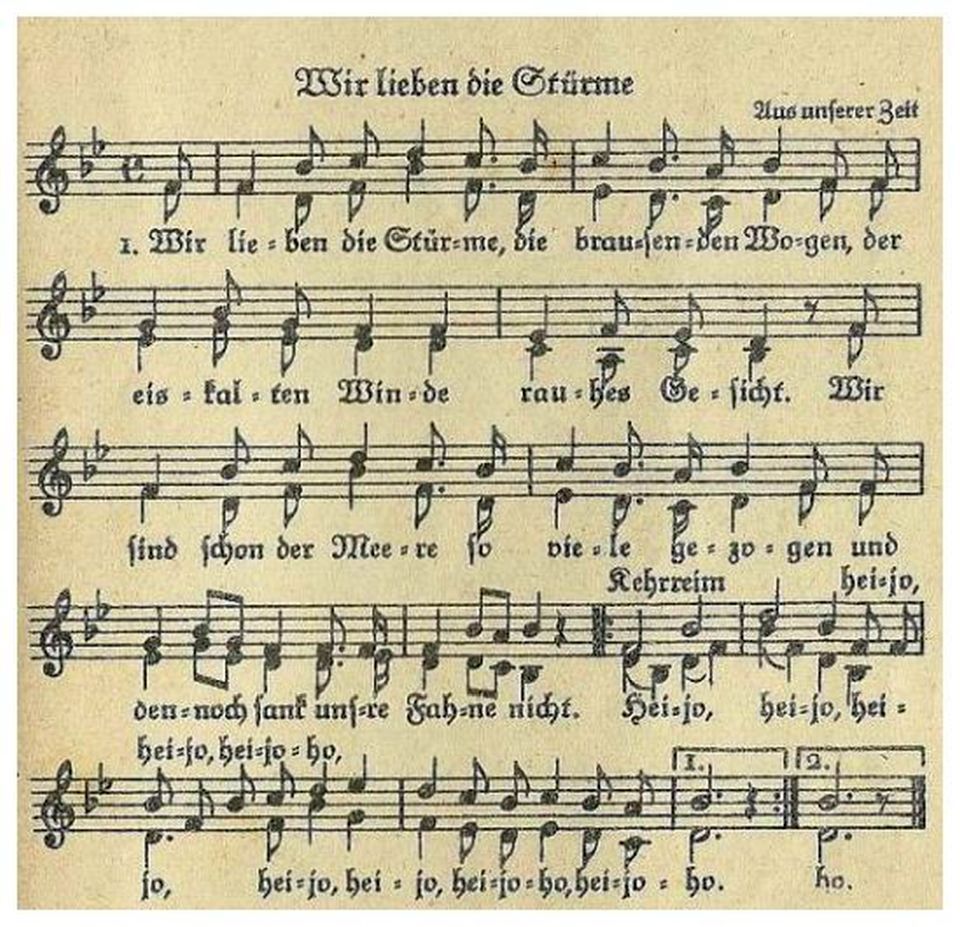 Wir lieben die Stürme
Aus unserer Zeit
1. Wir lie = ben die Stür=me, die brau=sen=den Wo=gen, der
eis = kal = ten Win=de rau=hes Ge = sicht. Wir
sind schon der Mee=re so vie=le ge = zo = gen und
Kehrreim hei=jo,
den=noch sank uns=re Fah=ne nicht. Hei=jo, hei=jo, hei =
hei=jo, hei=jo = ho,
1. 2.
jo, hei=jo, hei = jo, hei=jo=ho, hei=jo = ho. ho.